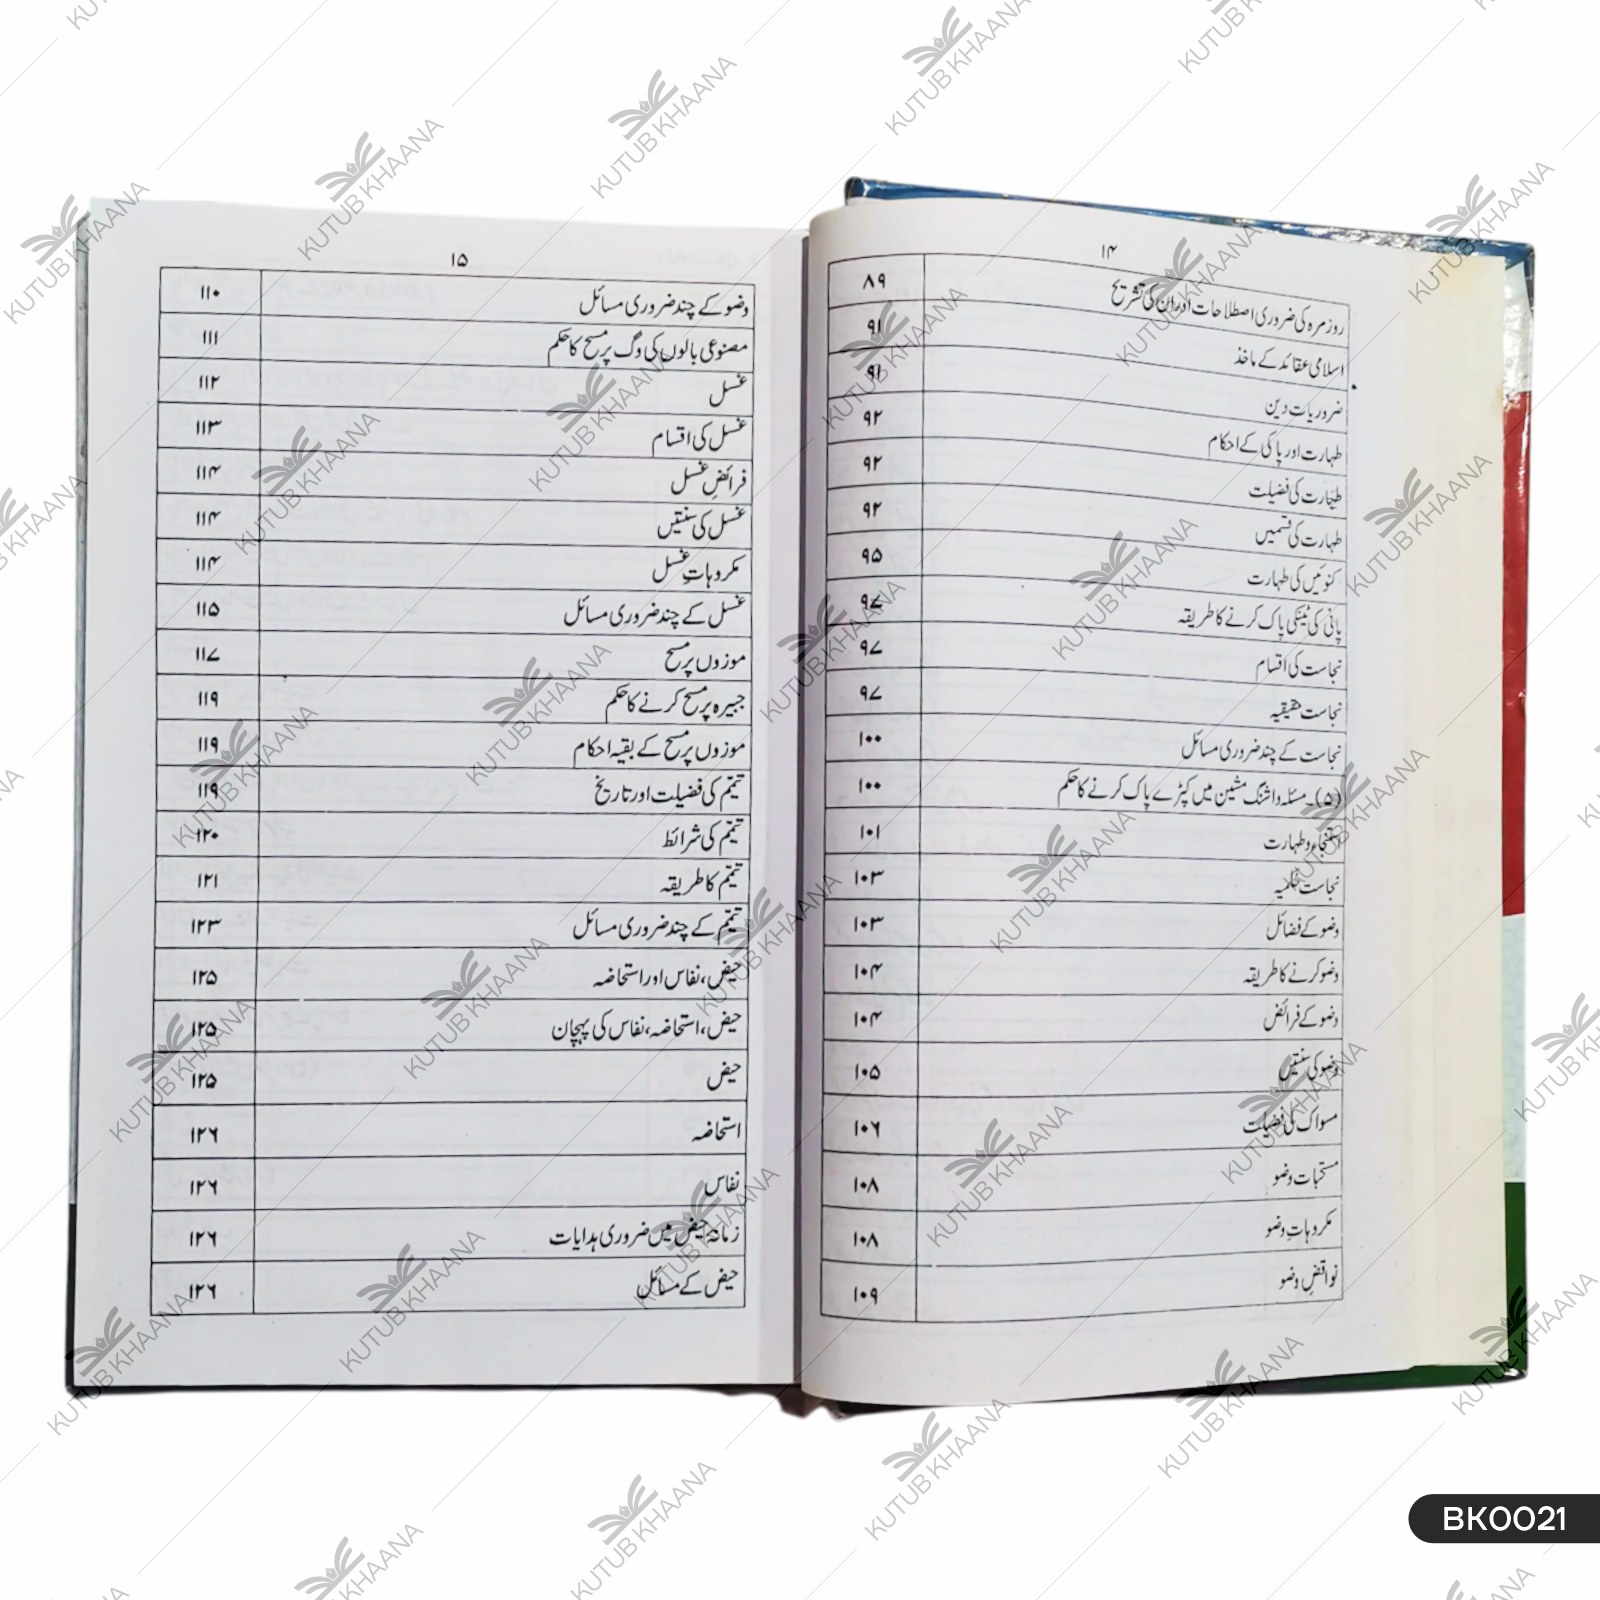 ۱۴
روزمرہ کی ضروری اصطلاحات اور ان کی تشریح ۸۹
اسلامی عقائد کے ماخذ ۹۱
ضروریات دین ۹۱
طہارت اور پاکی کے احکام ۹۲
طہارت کی فضیلت ۹۲
طہارت کی قسمیں ۹۲
کنوئیں کی طہارت ۹۵
پانی کی ٹینکی پاک کرنے کا طریقہ ۹۷
نجاست کی اقسام ۹۷
نجاست حقیقیہ ۹۷
نجاست کے چند ضروری مسائل ۱۰۰
(۵)۔ مسئلہ واشنگ مشین میں کپڑے پاک کرنے کا حکم ۱۰۰
استنجاء و طہارت ۱۰۱
نجاست حکمیہ ۱۰۳
وضو کے فضائل ۱۰۳
وضو کرنے کا طریقہ ۱۰۴
وضو کے فرائض ۱۰۴
وضو کی سنتیں ۱۰۵
مسواک کی فضیلت ۱۰۶
مستحبات وضو ۱۰۸
مکروہاتِ وضو ۱۰۸
نواقضِ وضو ۱۰۹
۱۵
وضو کے چند ضروری مسائل ۱۱۰
مصنوعی بالوں کی وگ پر مسح کا حکم ۱۱۱
غسل ۱۱۲
غسل کی اقسام ۱۱۳
فرائضِ غسل ۱۱۴
غسل کی سنتیں ۱۱۴
مکروہاتِ غسل ۱۱۴
غسل کے چند ضروری مسائل ۱۱۵
موزوں پر مسح ۱۱۷
جبیرہ پر مسح کرنے کا حکم ۱۱۹
موزوں پر مسح کے بقیہ احکام ۱۱۹
تیمّم کی فضیلت اور تاریخ ۱۱۹
تیمّم کی شرائط ۱۲۰
تیمّم کا طریقہ ۱۲۱
تیمّم کے چند ضروری مسائل ۱۲۳
حیض، نفاس اور استحاضہ ۱۲۵
حیض، استحاضہ، نفاس کی پہچان ۱۲۵
حیض ۱۲۵
استحاضہ ۱۲۶
نفاس ۱۲۶
زمانۂ حیض میں ضروری ہدایات ۱۲۶
حیض کے مسائل ۱۲۶
KUTUB KHAANA
BK0021